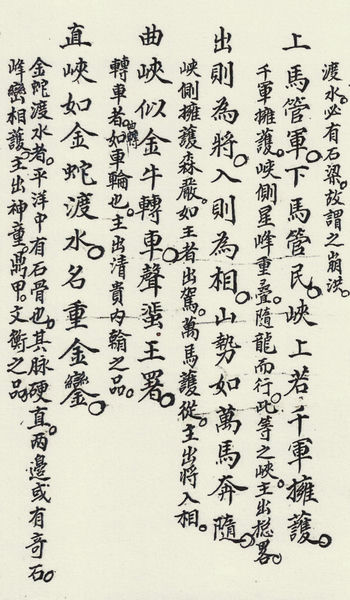 渡水。必有石梁。故謂之崩洪。
上馬管軍。下馬管民。峽上若千軍擁護。
千軍擁護。峽側星峰重疊。隨龍而行。此等之峽。主出總畧。
出則為將。入則為相。山勢如萬馬奔隨。
峽側擁護森嚴。如王者出駕。萬馬護從。主出將入相。
曲峽似金牛轉車。聲蜚王署。
轉車者。如車輪也。主出清貴內翰之品。
直峽如金蛇渡水。名重金鑾。
金蛇渡水者。平洋中有石骨也。其脉硬直。两邊或有奇石。
峰巒相護。主出神童。高甲。文衡之品。